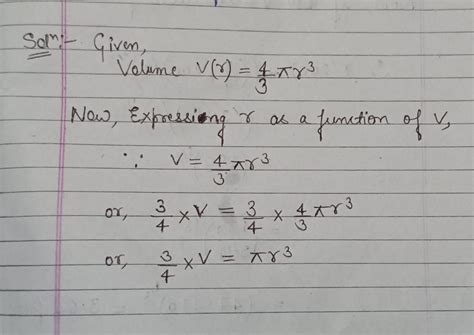 Solⁿ:- Given,
Volume V(r) = 4/3 πr³
Now, Expressing r as a function of V,
∵ V = 4/3 πr³
or, 3/4 × V = 3/4 × 4/3 πr³
or, 3/4 × V = πr³